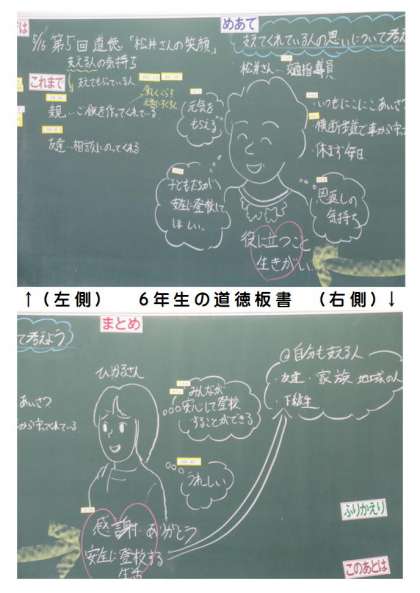 めあて
5/16 第5回 道徳 「松井さんの笑顔」
支えてくれている人の思いについて考え
支える人の気持ち
これまで
支えてもらっている人
親…ご飯を作ってくれている
友達…相談にのってくれる
松井さん…交通指導員
元気をもらえる
いつもにこにこあいさつ
横断歩道で車から守
休まず毎日
子どもたちが
安全に登校して
ほしい。
恩返しの
気持ち
役に立つこと
生きがい
↑(左側) 6年生の道徳板書 (右側)↓
て考えよう
まとめ
ひかるさん
あいさつ
から守ってくれている
みんなが
安心して登校
することができる
うれしい
感謝 ありがとう
安全に登校する
生活
自分も支える人
・友達・家族 地域の人
・下級生
ふりかえり
このあとは